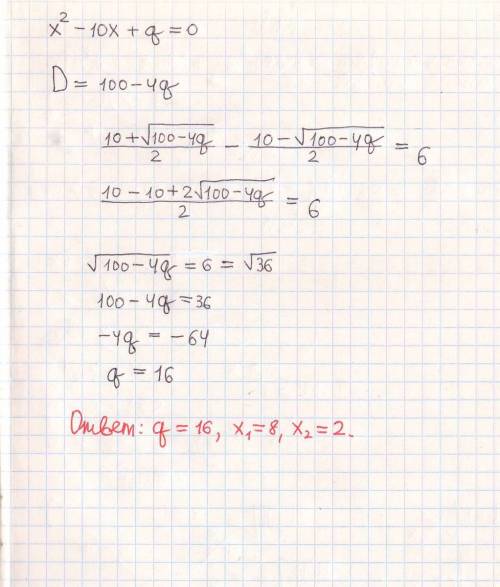 x² - 10x + q = 0
D = 100 - 4q
(10 + √(100 - 4q))/2 - (10 - √(100 - 4q))/2 = 6
(10 - 10 + 2√(100 - 4q))/2 = 6
√(100 - 4q) = 6 = √36
100 - 4q = 36
-4q = -64
q = 16
Ответ: q = 16, x₁ = 8, x₂ = 2.